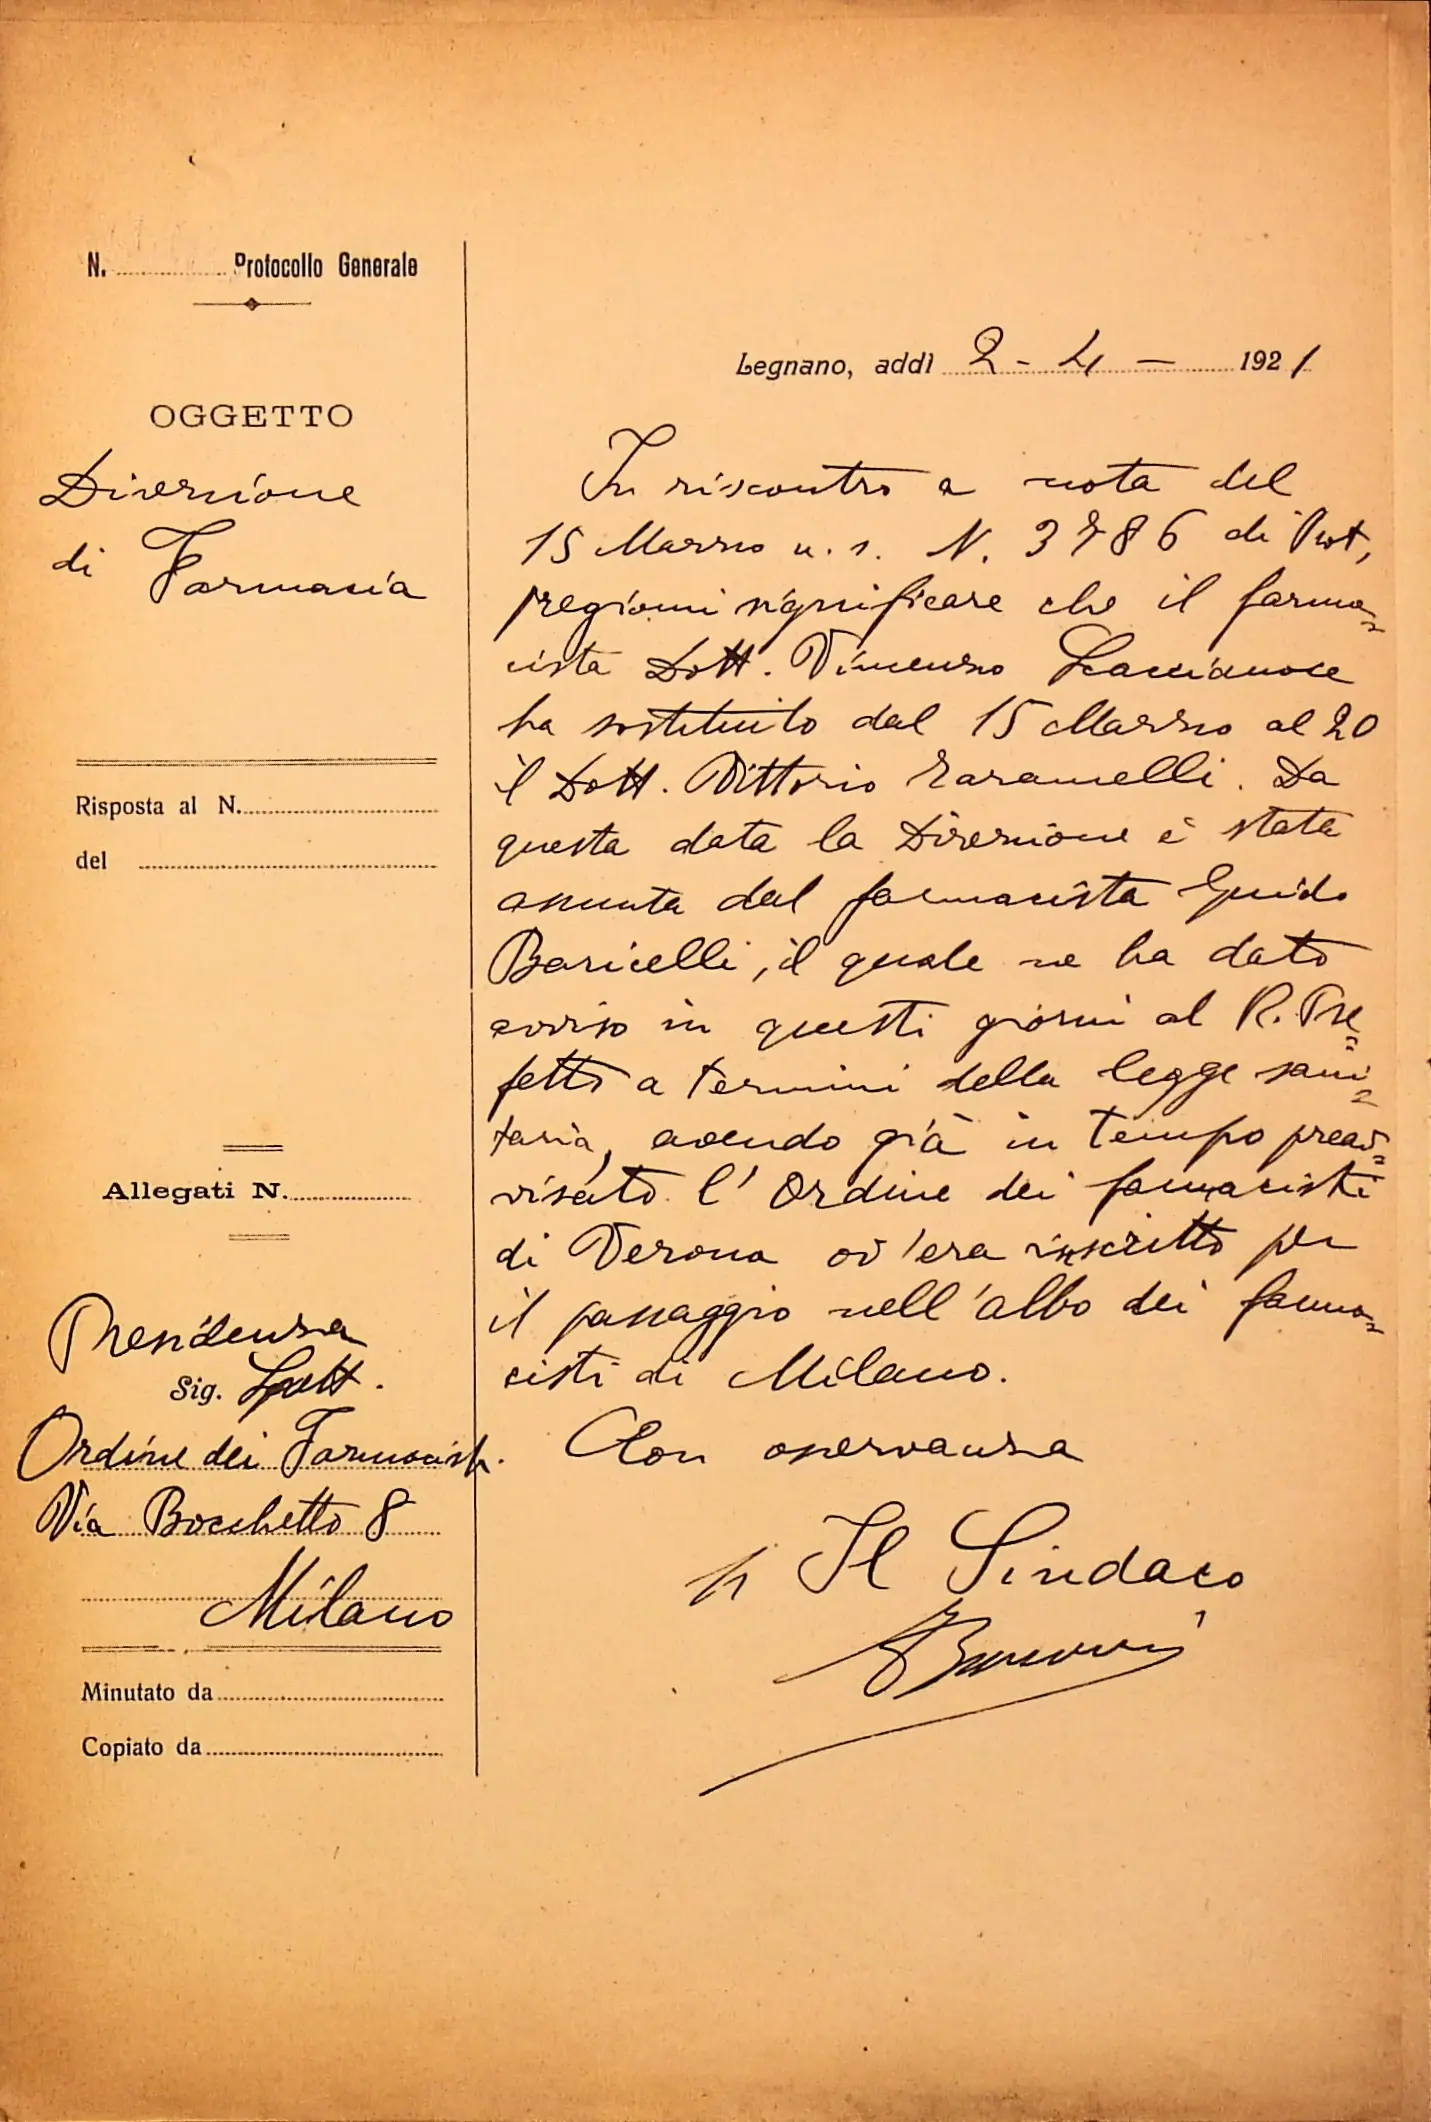 N. Protocollo Generale
OGGETTO
Direzione
di Farmacia
Risposta al N.
del
Allegati N.
Presidenza
Sig.
Ordine dei Farmacisti
Via Bocchetto 8
Milano
Minutato da
Copiato da
Legnano, addì 2-4- 1921
In riscontro a nota del
15 Marzo u.s. N. 3786 di Prot,
pregiomi significare che il farma=
cista Dott. Vincenzo
ha sostituito dal 15 Marzo al 20
il Dott. Vittorio Taramelli. Da
questa data la Direzione è stata
assunta dal farmacista Guido
Baricelli, il quale ne ha dato
avviso in questi giorni al R. Pre=
fetto a termini della legge sani=
taria, avendo già in tempo preav=
visato l'Ordine dei farmacisti
di Verona ov'era inscritto per
il passaggio nell'albo dei farma=
cisti di Milano.
Con osservanza
p Il Sindaco